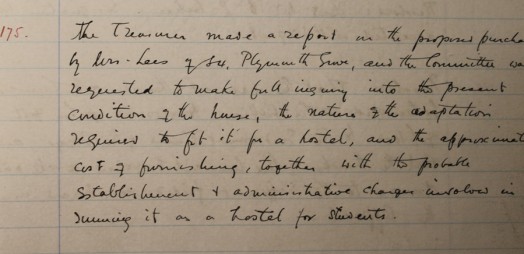 175. The Treasurer made a report on the proposed purcha
by Mrs. Lees of Plymouth Grove, and the Committee wa
requested to make full inquiry into the present
condition of the house, the nature of the adaptation
required to fit it for a hostel, and the approximat
cost of furnishing, together with the probable
establishment & administrative charges involved in
running it as a hostel for students.